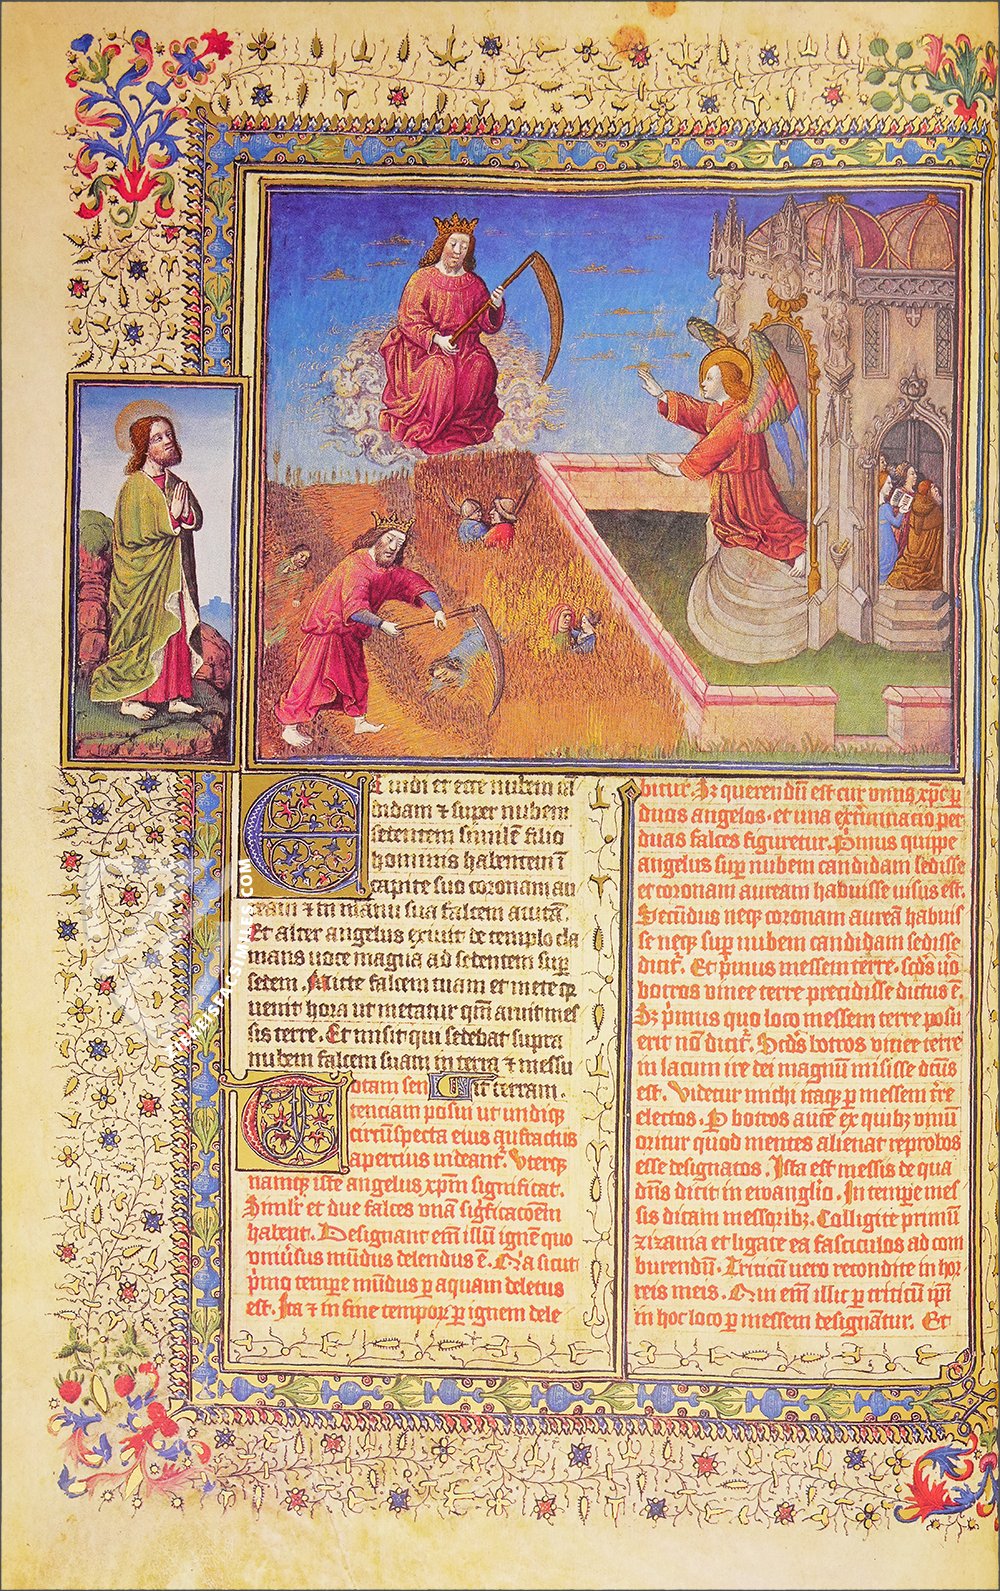 Et vidi et ecce nubem cā
didam ⁊ super nubem
sedentem similē filio
hominis habentem ī
capite suo coronam au
ream ⁊ in manu sua falcem acutā.
Et alter angelus exivit de templo cla
mans voce magna ad sedentem supr
sedem. Mitte falcem tuam et mete qr
venit hora ut metatur qm̄ aruit mes
sis terre. Et misit qui sedebat supra
nubem falcem suam in terra ⁊ messu
it terram.
Totam sen
tenciam posui ut undiqꝫ
circūspecta eius anfractus
apertius videant̄. Uterqꝫ
namqꝫ iste angelus xp̄m significat.
Similr̄ et duę falces unā sig̅ficacōem
habent. Designant em̄ illū ignē quo
universus mūdus delendus ē. Na sicut
pͥmo tempre mūdus p aquam deletus
est. Ita ⁊ in fine tempor̄ p ignem dele
bitur. Iꝫ querendū est cur unus xp̄c p
duos angelos. et una extͥminacio per
duas falces figuretur. Pͥmus quippe
angelus supr nubem candidam sedisse
et coronam auream habuisse visus est.
Secūdus neqꝫ coronam aureā habuis
se neqꝫ supr nubem candidam sedisse
dicit̄. Et pͥmus messem terre. scds̄ v̄o
botros vinee terre precidisse dictus ē.
Iꝫ pͥmus quo loco messem terre posu
erit nō dicit̄. Scds̄ botros vinee terre
in lacum ire dei magnū misisse dictus
est. Videtur michi itaqꝫ p messem tr̄e
electos. P botros autē ex quibꝫ vinū
oritur quod mentes alienat reprobos
esse designatos. Ista est messis de qua
dn̄s dicit in ewanglio. In tempre mes
sis dicam messoribꝫ. Colligite primū
zizania et ligate ea fasciculos ad com
burendū. Triticū vero recondite in hor
reis meis. Nui em̄ illic p triticū ip̄i
in hoc loco p messem designātur. Et
ZIEREISFACSIMILES.COM